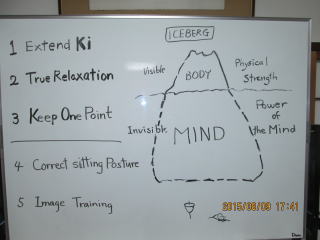 ICEBERG
1 Extend Ki
2 True Relaxation
3 Keep One Point
4 Correct sitting Posture
5 Image Training
Visible
BODY
Physical
Strength
Invisible
MIND
Power
of
the Mind
2015/06/09 17:41